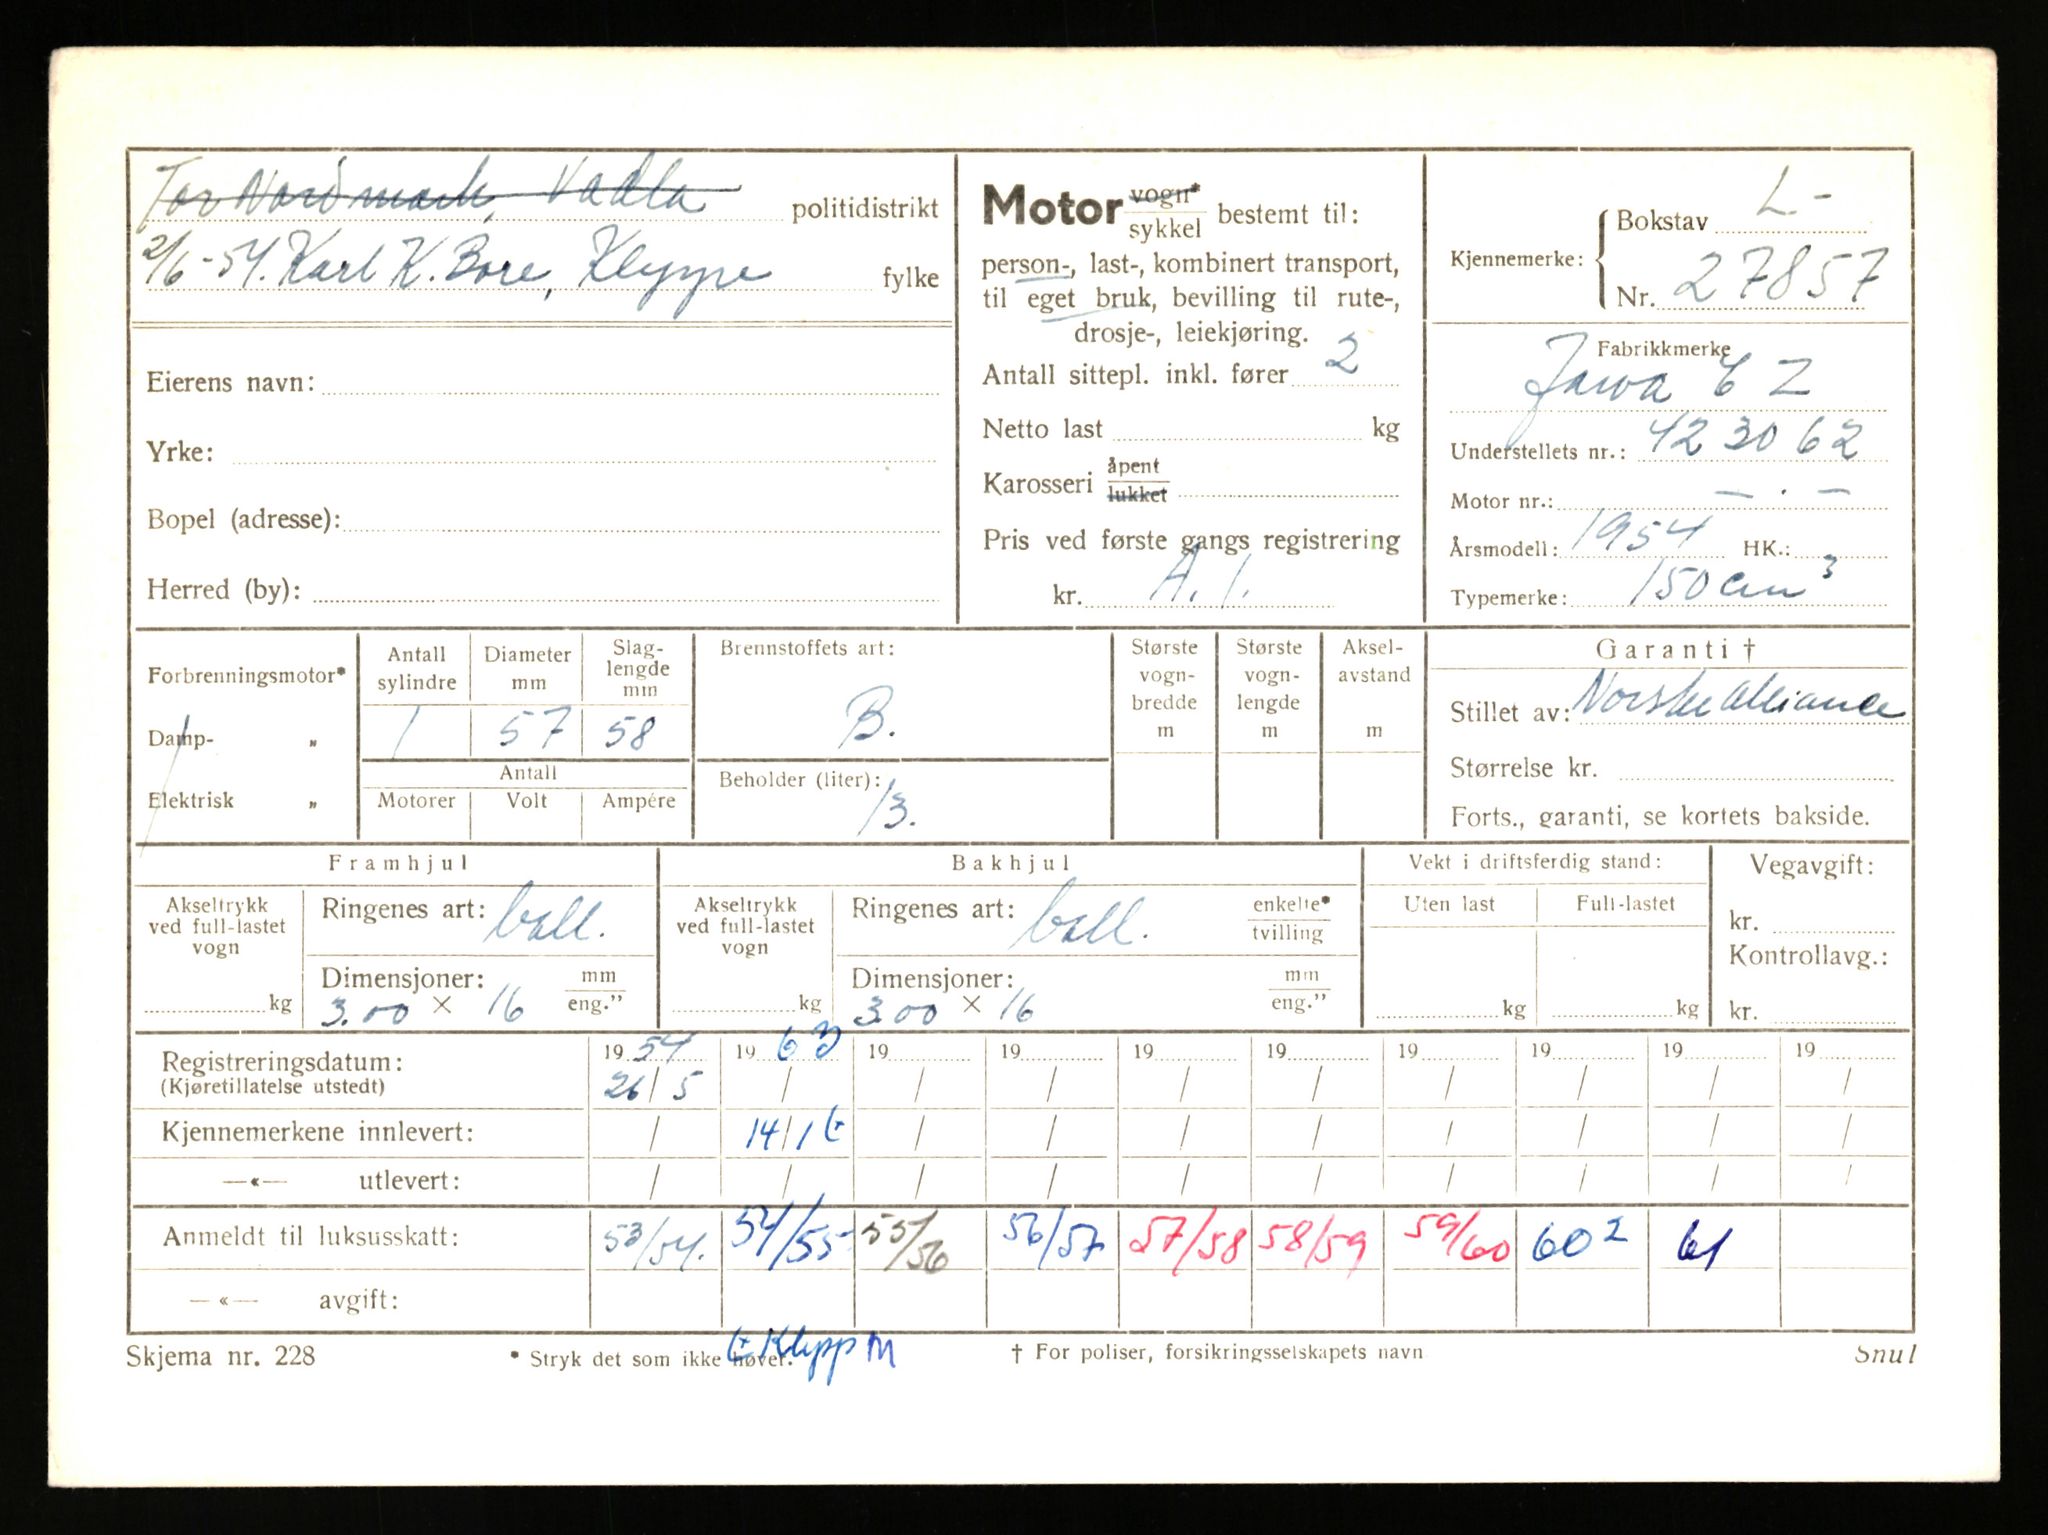 Tor Nordmark, Vadla politidistrikt
2/6-54. Karl K. Bore, Kleppe fylke
Eierens navn:
Yrke:
Bopel (adresse):
Herred (by):
Motor vogn* sykkel bestemt til:
person-, last-, kombinert transport,
til eget bruk, bevilling til rute-,
drosje-, leiekjøring.
Antall sittepl. inkl. fører 2
Netto last kg
Karosseri åpent lukket
Pris ved første gangs registrering
kr. A. 1.
Kjennemerke: Bokstav L-
Nr. 27857
Fabrikkmerke
Jawa CZ
Understellets nr.: 423062
Motor nr.: — . —
Årsmodell: 1954 HK.:
Typemerke: 150 cm³
Forbrenningsmotor*
Damp- „
Elektrisk „
Antall sylindre
1
Diameter mm
57
Slag-lengde mm
58
Antall
Motorer Volt Ampére
Brennstoffets art:
B.
Beholder (liter):
13.
Største vogn-bredde m
Største vogn-lengde m
Aksel-avstand m
Garanti †
Stillet av: Norske Alliance
Størrelse kr.
Forts., garanti, se kortets bakside.
Framhjul
Akseltrykk ved full-lastet vogn
kg
Ringenes art: ball.
Dimensjoner: mm
3.00 × 16 eng.”
Bakhjul
Akseltrykk ved full-lastet vogn
kg
Ringenes art: ball. enkelte* tvilling
Dimensjoner: mm
3.00 × 16 eng.”
Vekt i driftsferdig stand:
Uten last Full-lastet
kg kg
Vegavgift:
kr.
Kontrollavg.:
kr.
Registreringsdatum: 19 54 19 63 19 19 19 19 19 19 19 19
(Kjøretillatelse utstedt) 26/5 / / / / / / / / /
Kjennemerkene innlevert: / 14/1 / / / / / / / /
—«— utlevert: / / / / / / / / / /
Anmeldt til luksusskatt: 53/54. 54/55 55/56 56/57 57/58 58/59 59/60 60² 61
—«— avgift:
Klepp M
Skjema nr. 228 * Stryk det som ikke høver. † For poliser, forsikringsselskapets navn Snul